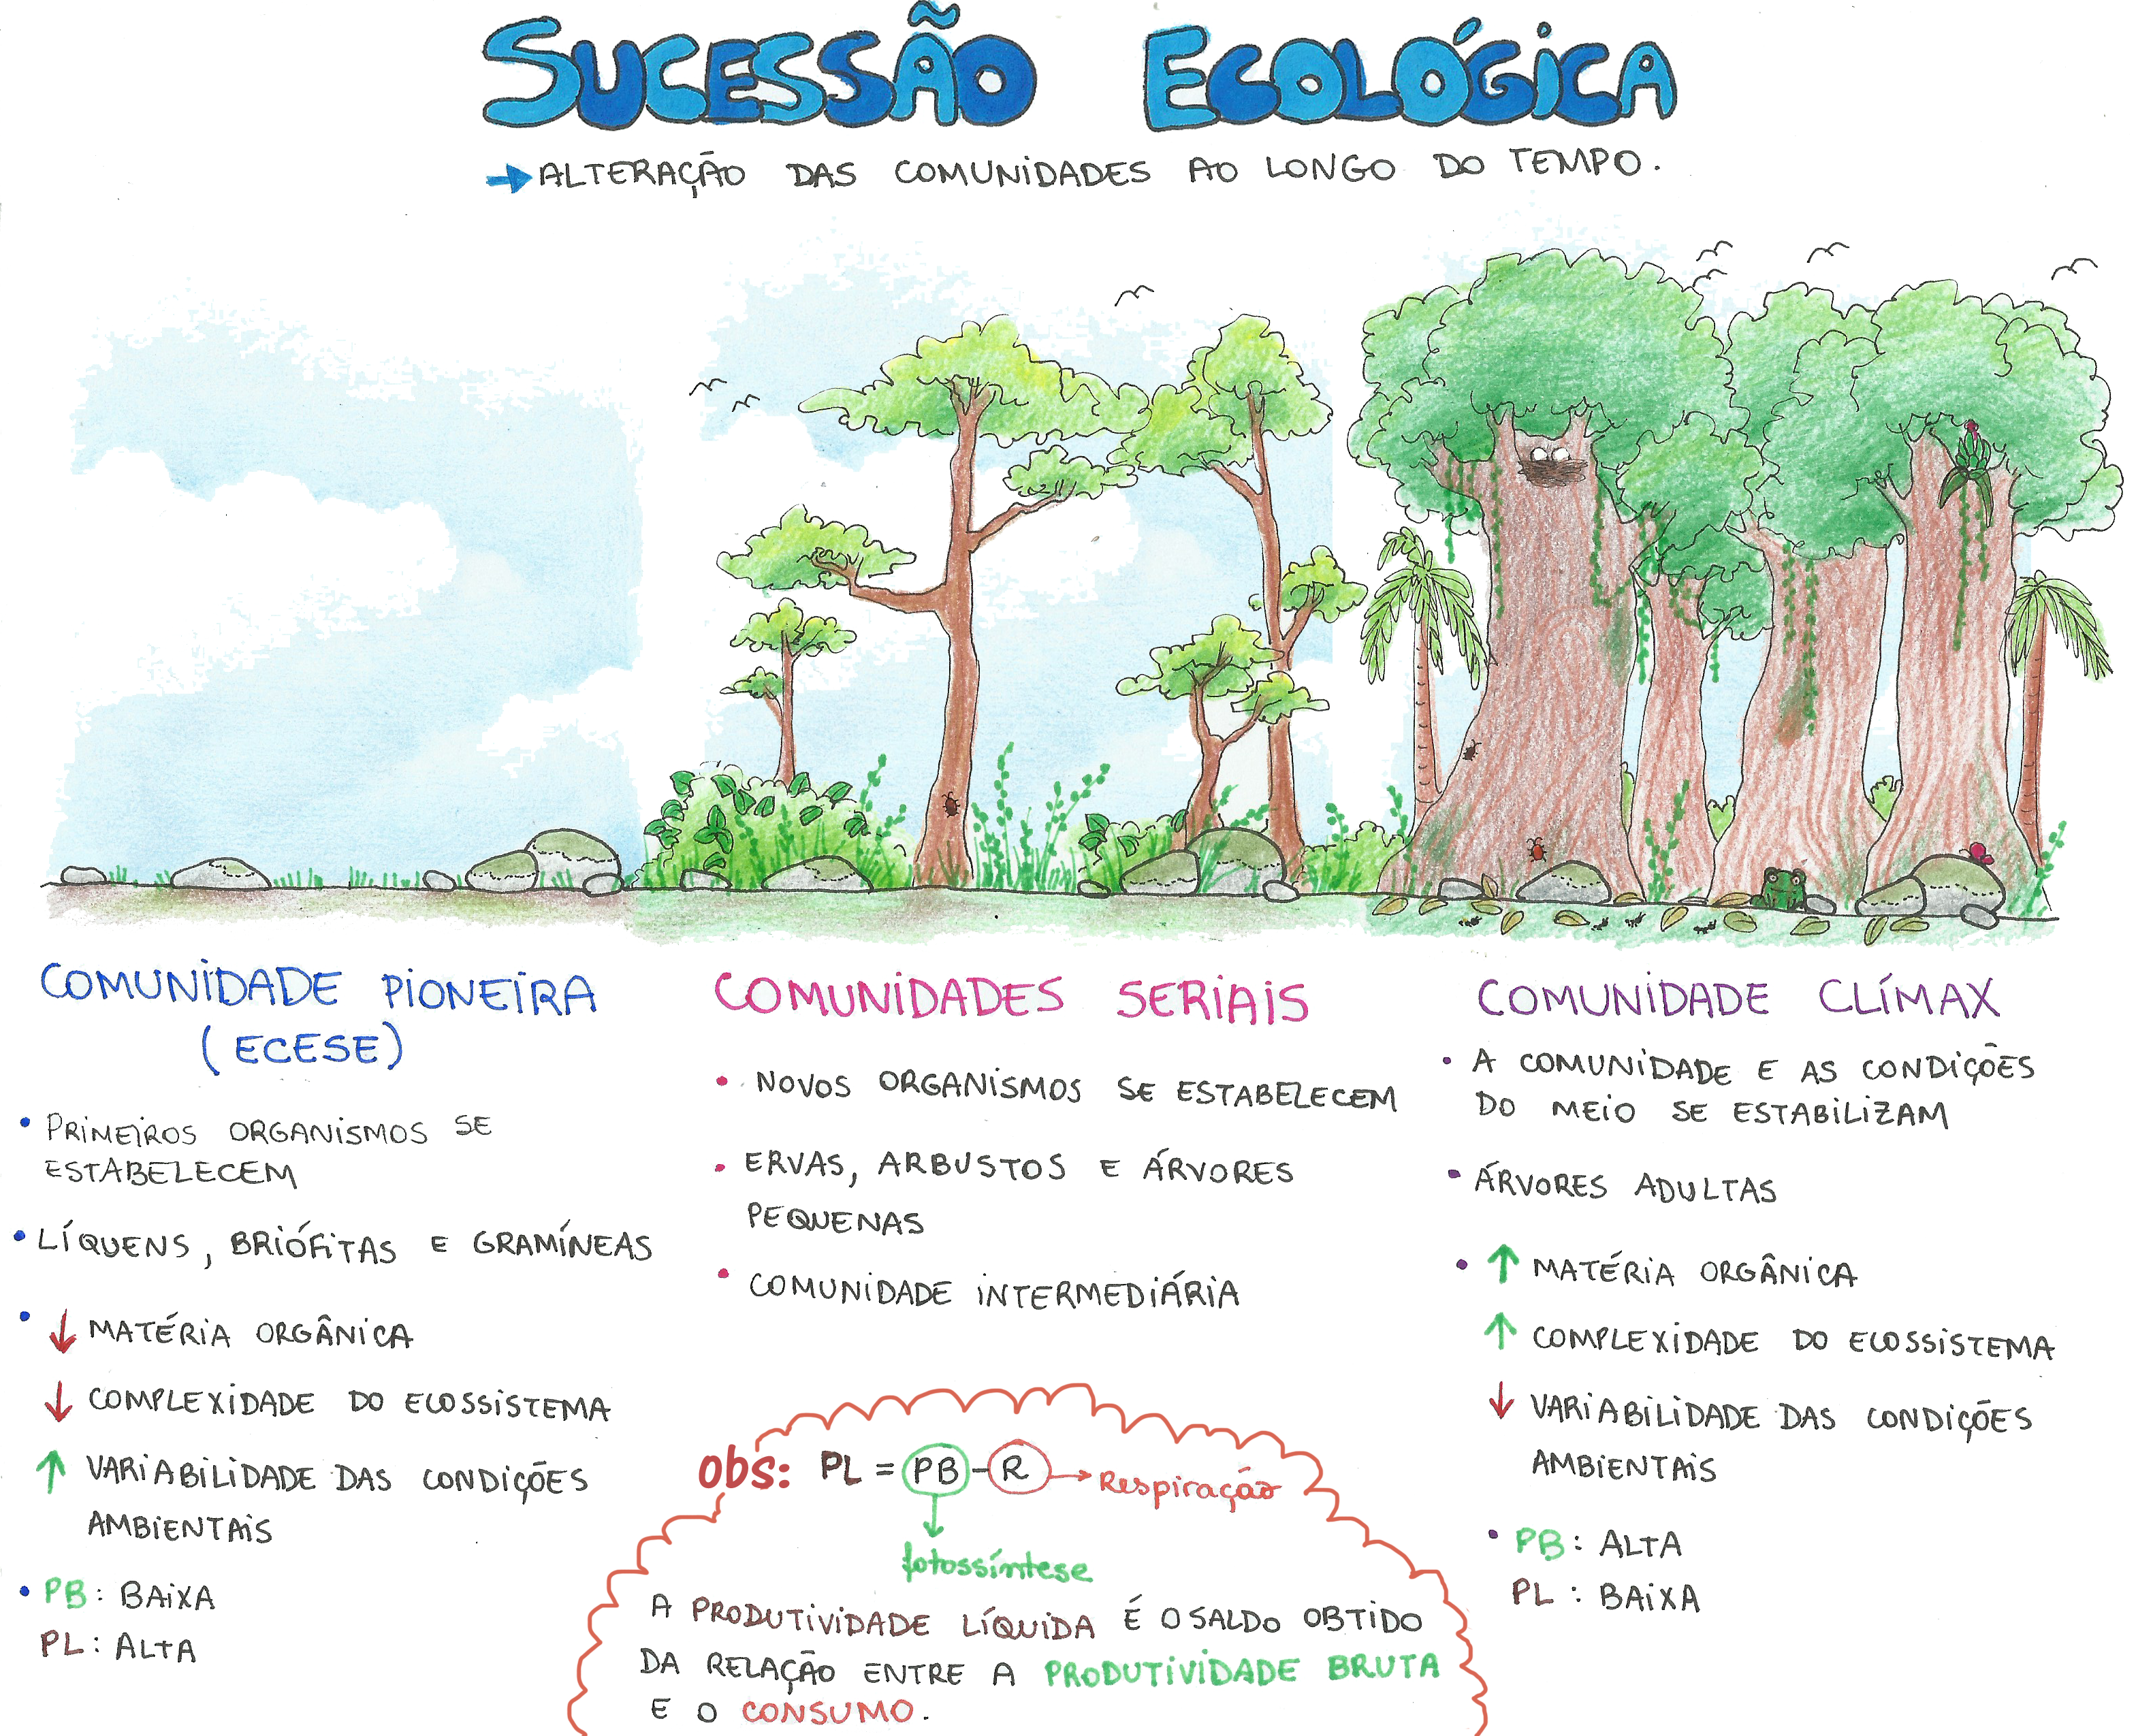 SUCESSÃO ECOLÓGICA
→ ALTERAÇÃO DAS COMUNIDADES AO LONGO DO TEMPO.
COMUNIDADE PIONEIRA
(ECESE)
• PRIMEIROS ORGANISMOS SE
ESTABELECEM
• LÍQUENS, BRIÓFITAS E GRAMÍNEAS
• ↓ MATÉRIA ORGÂNICA
↓ COMPLEXIDADE DO ECOSSISTEMA
↑ VARIABILIDADE DAS CONDIÇÕES
AMBIENTAIS
• PB: BAIXA
PL: ALTA
COMUNIDADES SERIAIS
• NOVOS ORGANISMOS SE ESTABELECEM
• ERVAS, ARBUSTOS E ÁRVORES
PEQUENAS
• COMUNIDADE INTERMEDIÁRIA
obs: PL = PB - R → Respiração
fotossíntese
A PRODUTIVIDADE LÍQUIDA É O SALDO OBTIDO
DA RELAÇÃO ENTRE A PRODUTIVIDADE BRUTA
E O CONSUMO.
COMUNIDADE CLÍMAX
• A COMUNIDADE E AS CONDIÇÕES
DO MEIO SE ESTABILIZAM
• ÁRVORES ADULTAS
• ↑ MATÉRIA ORGÂNICA
↑ COMPLEXIDADE DO ECOSSISTEMA
↓ VARIABILIDADE DAS CONDIÇÕES
AMBIENTAIS
• PB: ALTA
PL: BAIXA